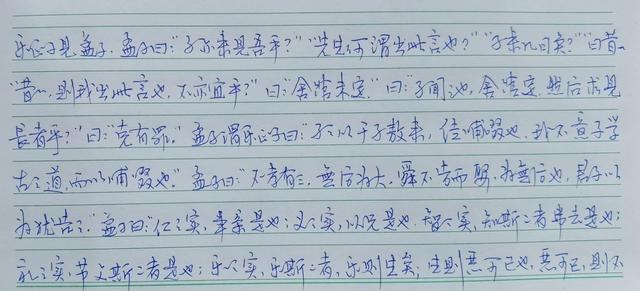 乐正子见孟子。孟子曰:“子亦来见吾乎?”“先生何谓出此言也?”“子来几日矣?”曰“昔一
“昔一,则我出此言也,不亦宜乎?”曰“舍馆未定”曰:“子闻之也,舍馆定,然后求见
长者乎?”曰:“克有罪。”孟子谓乐正子曰:“子之以于子敖来,徒哺啜也,我不意子学
古之道,而以哺啜也。”孟子曰:“不孝有三,無后为大,舜不告而娶,为無后也,君子以
为犹告之。”孟子曰:“仁之实,事亲是也;义之实,从兄是也,智之实,知斯二者弗去是也;
礼之实,节文斯二者是也;乐之实,乐斯二者,乐则生矣;生则恶可已也,恶可已,则不